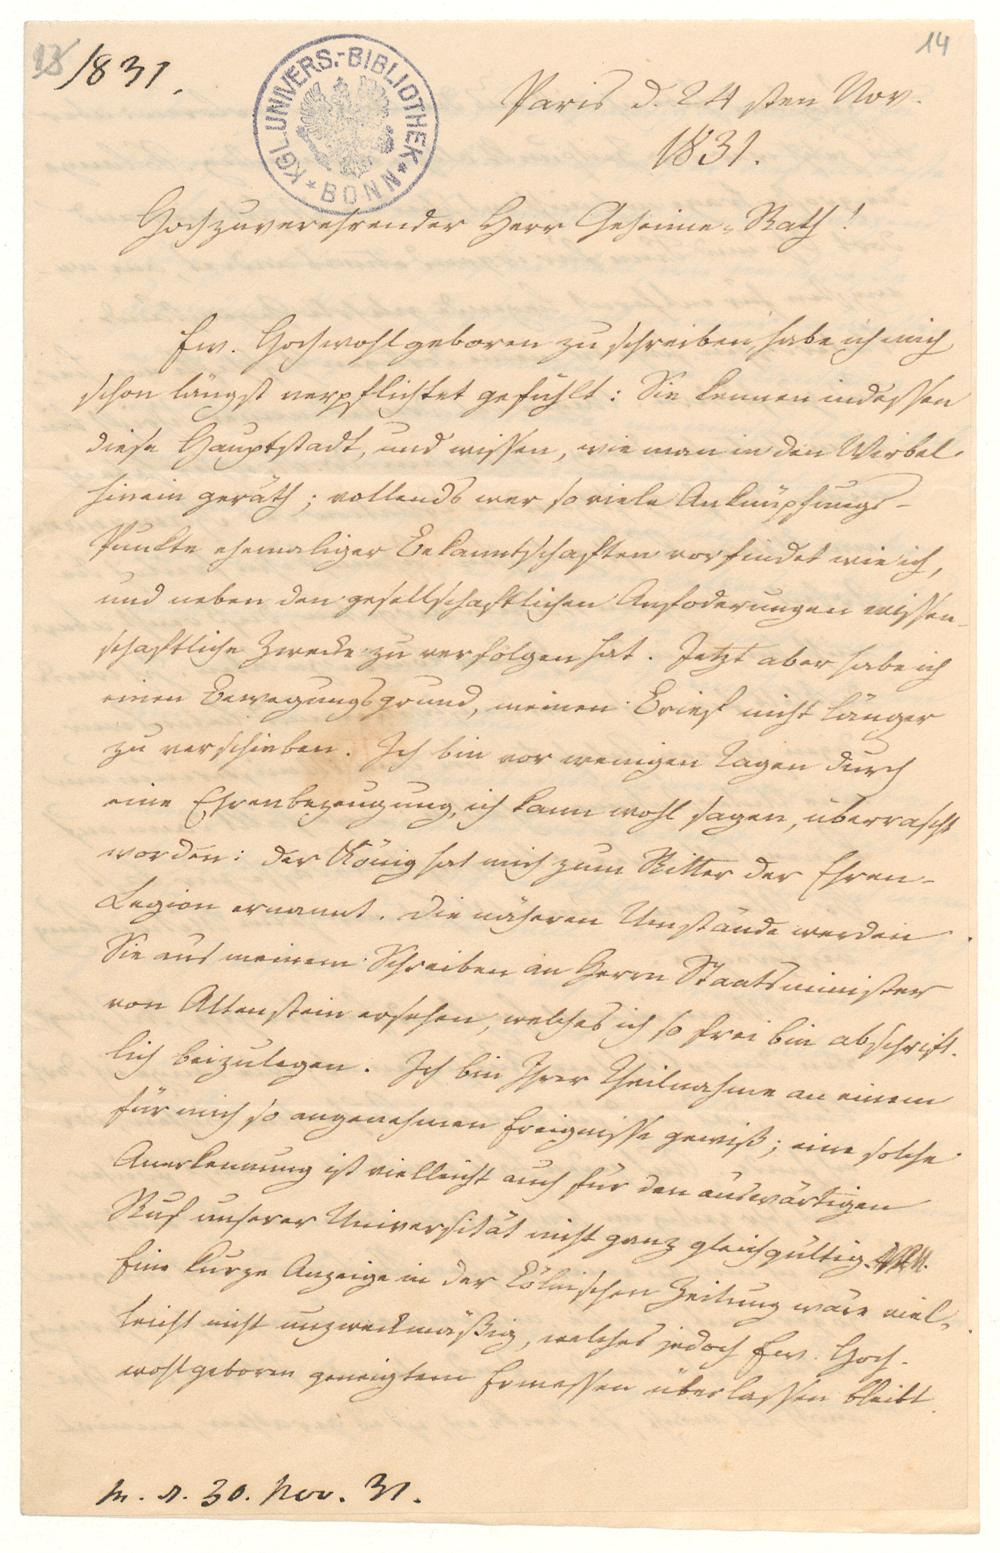 13 1831.
14
KGL. UNIVERS.-BIBLIOTHEK
* BONN *
Paris d. 24sten Nov.
1831.
Hochzuverehrender Herr Geheime-Rath!
Ew. Hochwohlgeboren zu schreiben habe ich mich
schon längst verpflichtet gefühlt: Sie kennen indessen
diese Hauptstadt, und wissen, wie man in den Wirbel
hinein geräth; vollends wer so viele Anknüpfungs-
Punkte ehemaliger Bekanntschaften vorfindet wie ich,
und neben den gesellschaftlichen Anfoderungen wissen-
schaftliche Zwecke zu verfolgen hat. Jetzt aber habe ich
einen Bewegungsgrund, meinen Brief nicht länger
zu verschieben. Ich bin vor wenigen Tagen durch
eine Ehrenbezeugung, ich kann wohl sagen, überrascht
worden: der König hat mich zum Ritter der Ehren-
Legion ernannt. Die näheren Umstände werden
Sie aus meinem Schreiben an Herrn Staatsminister
von Altenstein ersehen, welches ich so frei bin abschrift-
lich beizulegen. Ich bin Ihrer Theilnahme an einem
für mich so angenehmen Ereignisse gewiß; eine solche
Anerkennung ist vielleicht auch für den auswärtigen
Ruf unserer Universität nicht ganz gleichgültig.
Eine kurze Anzeige in der Cölnischen Zeitung wäre viel-
leicht nicht unzweckmäßig, welches jedoch Ew. Hoch-
wohlgeboren geneigtem Ermessen überlassen bleibt.
30. Nov. 31.